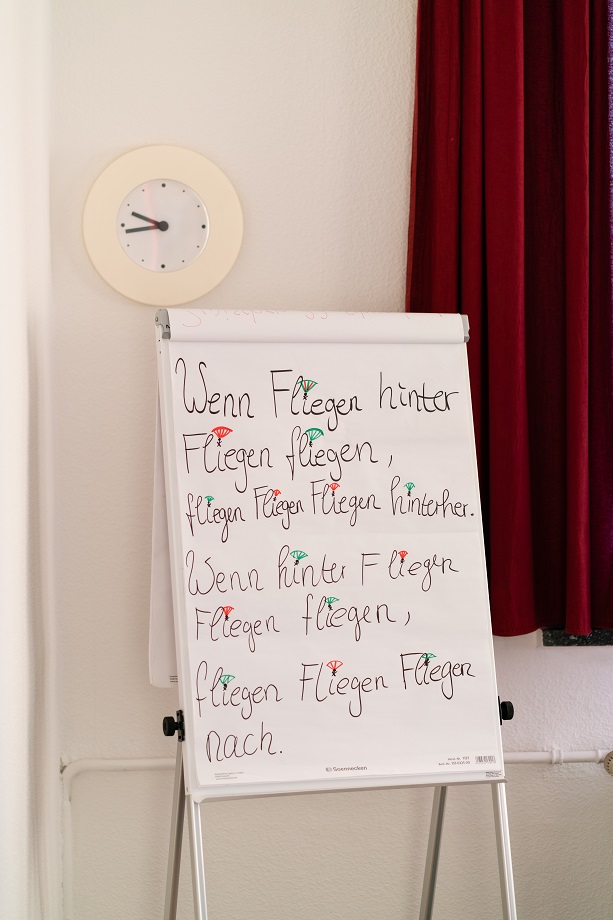 Wenn Fliegen hinter
Fliegen fliegen,
fliegen Fliegen Fliegen hinterher.
Wenn hinter Fliegen
Fliegen fliegen,
fliegen Fliegen Fliegen
nach.
Soennecken